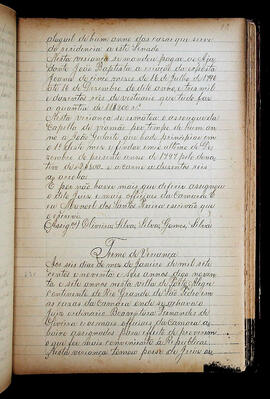 aluguel de hum anno das casas que serve
de residencia a este Senado
Nesta vereança se mandou pagar ao Aju
dante João Baptista a criação da exposta
Joanna de cinco mezes de 16 de Julho of 1796
até 16 de Dezembro do dito anno, e tres mil
e duzentos reis de vestuario que tudo faz
a quantia de
Nesta vereança se arrematou o assougue da
Capella de Viamão por tempo de hum an
no a João
o 1º deste mez e findar em o ultimo de De
zembro do presente anno de 1797 pelo dona
tivo de e a carne a duzentos reis
a arroba
E por não haver mais que deferir assignou
o dito Juiz e mais officiaes da Camara E
eu Manoel dos Santos escrivão que
o escrevi
Assigdos Oliveira, Silva, Silva, Gomes, Silva
Termo de Vereança
Aos seis dias do mez de Janeiro de mil sete
centos e noventa e seis annos digo noven
ta e sete annos nesta villa de Porto Alegre
continente do Rio Grande de São Pedro em
as casas da Camara onde se achavão o
Juiz ordinario Fernandes de
Oliveira e os mais officiaes da Camara a
baixo assignados para effeito de proverem
o que for mais conveniente a Republica
Nesta vereança tomou posse de Juiz